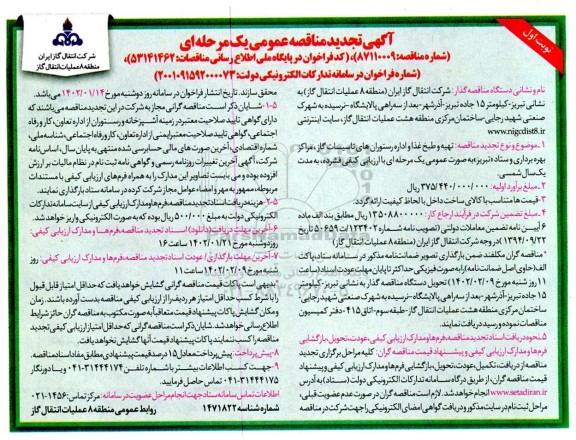 نوبت اول
شرکت انتقال گاز ایران
منطقه ۸ عملیات انتقال گاز
آگهی تجدید مناقصه عمومی یک مرحله‌ای
(شماره مناقصه: ۸۷۱۱۰۰۰۹)، (کد فراخوان در پایگاه ملی اطلاع رسانی مناقصات: ۵۳۱۴۱۴۶۲)،
(شماره فراخوان در سامانه تدارکات الکترونیکی دولت: ۲۰۰۱۰۹۱۵۹۲۰۰۰۰۷۳)
نام و نشانی دستگاه مناقصه گذار: شرکت انتقال گاز ایران (منطقه ۸ عملیات انتقال گاز) به
نشانی تبریز-کیلومتر ۱۵ جاده تبریز-آذرشهر-بعد از سه‌راهی پالایشگاه-نرسیده به شهرک
صنعتی شهید رجایی-ساختمان مرکزی منطقه هشت عملیات انتقال گاز، سایت اینترنتی
www.nigcdist8.ir
۱-موضوع و نوع تجدید مناقصه: تهیه و طبخ غذا و اداره رستوران‌های تاسیسات گاز، مراکز
بهره برداری و ستاد (تبریز)، به صورت عمومی یک مرحله ای با ارزیابی کیفی فشرده، به مدت
یک سال شمسی.
۲-مبلغ برآورد اولیه: ۳۷۵/۴۴۰/۰۰۰/۰۰۰ ریال
۳-قیمت ها متناسب با کالای ساخت داخل و با لحاظ کیفیت ارائه گردد.
۴-مبلغ تضمین شرکت در فرآیند ارجاع کار: ۱۳۵۰۸۸۰۰۰۰۰ ریال مطابق بند الف ماده
۶ آیین نامه تضمین معاملات دولتی (تصویب نامه شماره ۱۲۳۴۰۲/ت۵۰۶۵۹ه تاریخ
۱۳۹۴/۰۹/۲۲) در وجه شرکت گاز ایران (منطقه ۸ عملیات انتقال گاز).
* مناقصه گران مکلفند ضمن بارگذاری تصویر ضمانت‌نامه مذکور در سامانه ستاد، پاکت
الف (حاوی اصل ضمانت نامه) را به صورت فیزیکی حداکثر تا پایان مهلت عودت اسناد (ساعت
۱۱ روز شنبه مورخ ۱۴۰۲/۰۲/۰۹) تحویل دستگاه مناقصه گذار به نشانی تبریز-کیلومتر
۱۵ جاده تبریز-آذرشهر-بعد از سه‌راهی پالایشگاه-نرسیده به شهرک صنعتی شهید رجایی-
ساختمان مرکزی منطقه هشت عملیات انتقال گاز-طبقه سوم-اتاق ۴۱۵-دفتر کمیسیون
مناقصات نموده و رسید دریافت نمایند.
۵-نحوه دریافت اسناد تجدید مناقصه، فرم‌ها و مدارک ارزیابی کیفی، عودت، تحویل، بازگشایی
فرم‌ها و مدارک ارزیابی کیفی و پیشنهاد قیمت مناقصه گران: کلیه مراحل برگزاری تجدید
مناقصه از دریافت، تکمیل، عودت، تحویل، بازگشایی فرم‌ها و مدارک ارزیابی کیفی و پیشنهاد
قیمت مناقصه گران، از طریق درگاه سامانه تدارکات الکترونیکی دولت (ستاد) به آدرس
www.setadiran.ir انجام خواهد شد. لازم است مناقصه گران در صورت عدم عضویت قبلی،
مراحل ثبت نام در سایت مذکور و دریافت گواهی امضای الکترونیکی را جهت شرکت در مناقصه
محقق سازند. تاریخ انتشار فراخوان در سامانه روز دوشنبه مورخ ۱۴۰۲/۰۱/۱۴ می‌باشد.
۵-۱-شایان ذکر است مناقصه گرانی مجاز به شرکت در این تجدید مناقصه می‌باشند که
دارای گواهی تایید صلاحیت معتبر در زمینه آشپزخانه و رستوران از اداره تعاون، کار و رفاه
اجتماعی، گواهی تایید صلاحیت معتبر ایمنی از اداره تعاون، کار و رفاه اجتماعی، شناسه ملی،
شماره اقتصادی، آخرین صورت های مالی حسابرسی شده منتهی به پایان سال، اساس‌نامه
شرکت، آگهی آخرین تغییرات روزنامه رسمی و گواهی نامه ثبت نام در نظام مالیات بر ارزش
افزوده بوده و می بایست تصاویر این مدارک را به همراه فرم‌های ارزیابی کیفی با مستندات
مربوطه، ممهور به مهر و امضاء عوامل مجاز شرکت کرده در سامانه ستاد بارگذاری نمایند.
۵-۲-هزینه دریافت اسناد تجدید مناقصه، فرم‌ها و مدارک ارزیابی کیفی از سایت سامانه تدارکات
الکترونیکی دولت به مبلغ ۵۰۰/۰۰۰ ریال بوده که به صورت الکترونیکی واریز خواهد شد.
۶-آخرین مهلت دریافت (دانلود) اسناد تجدید مناقصه، فرم‌ها و مدارک ارزیابی کیفی:
روز دوشنبه مورخ ۱۴۰۲/۰۱/۲۱ ساعت ۱۶
۷-آخرین مهلت بارگذاری/عودت اسناد تجدید مناقصه، فرم‌ها و مدارک ارزیابی کیفی: روز
شنبه مورخ ۱۴۰۲/۰۲/۰۹ ساعت ۱۱
* بدیهی است پاکات قیمت مناقصه گرانی گشایش خواهد یافت که حداقل امتیاز قابل قبول
را با شرط کسب حداقل امتیاز هر ردیف، را از ارزیابی کیفی مناقصه بدست آورده باشند. زمان
و مکان گشایش پاکات پیشنهاد قیمت متعاقبا به صورت مکتوب به مناقصه گران حائز شرایط
اطلاع رسانی خواهد شد. شایان ذکر است مناقصه گرانی که حداقل امتیاز ارزیابی کیفی تجدید
مناقصه را کسب ننمایند پاکات پیشنهاد قیمت آنها گشایش نخواهد یافت.
۸-پیش پرداخت: پیش پرداخت معادل ۱۵ درصد قیمت پیشنهادی مطابق مفاد اسناد مناقصه.
۹-جهت کسب اطلاعات بیشتر با شماره تلفن: ۳۱۴۴۴۱۷۴-۰۴۱ و یا دورنگار
۳۱۴۴۴۱۷۵-۰۴۱ تماس حاصل فرمایید.
اطلاعات تماس سامانه ستاد جهت انجام مراحل عضویت در سامانه: مرکز تماس: ۱۴۵۶-۰۲۱
شماره شناسه ۱۴۷۱۸۲۲
روابط عمومی منطقه ۸ عملیات انتقال گاز